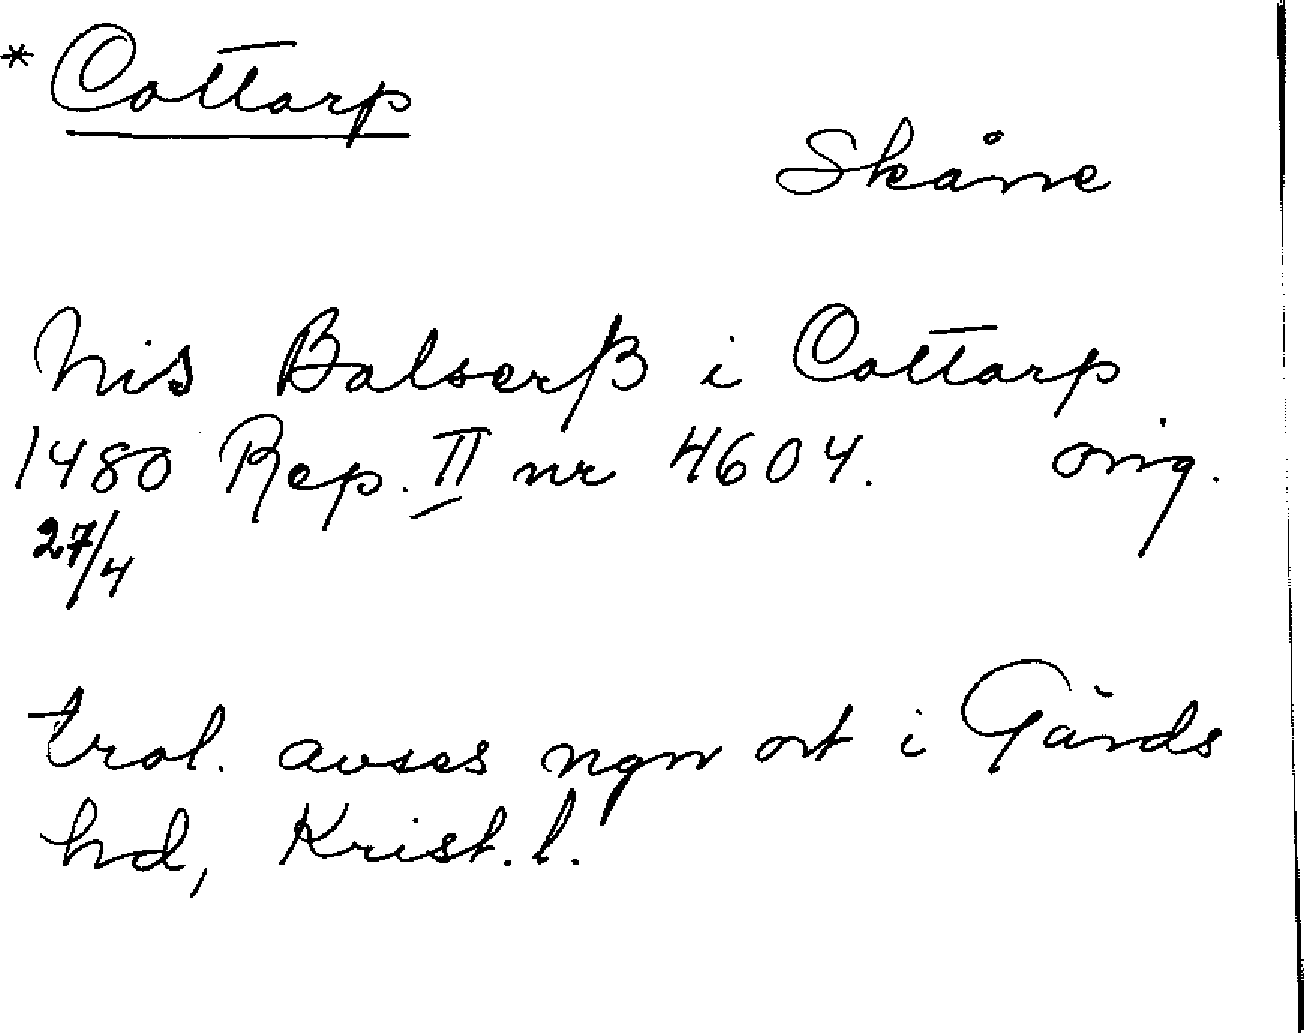 * Cottarp
Skåne
Nis Balserß i Cottarp
1480 Rep. II nr 4604. orig.
27/4
trol. avses ngn ort i Gärds
hd, Krist. l.